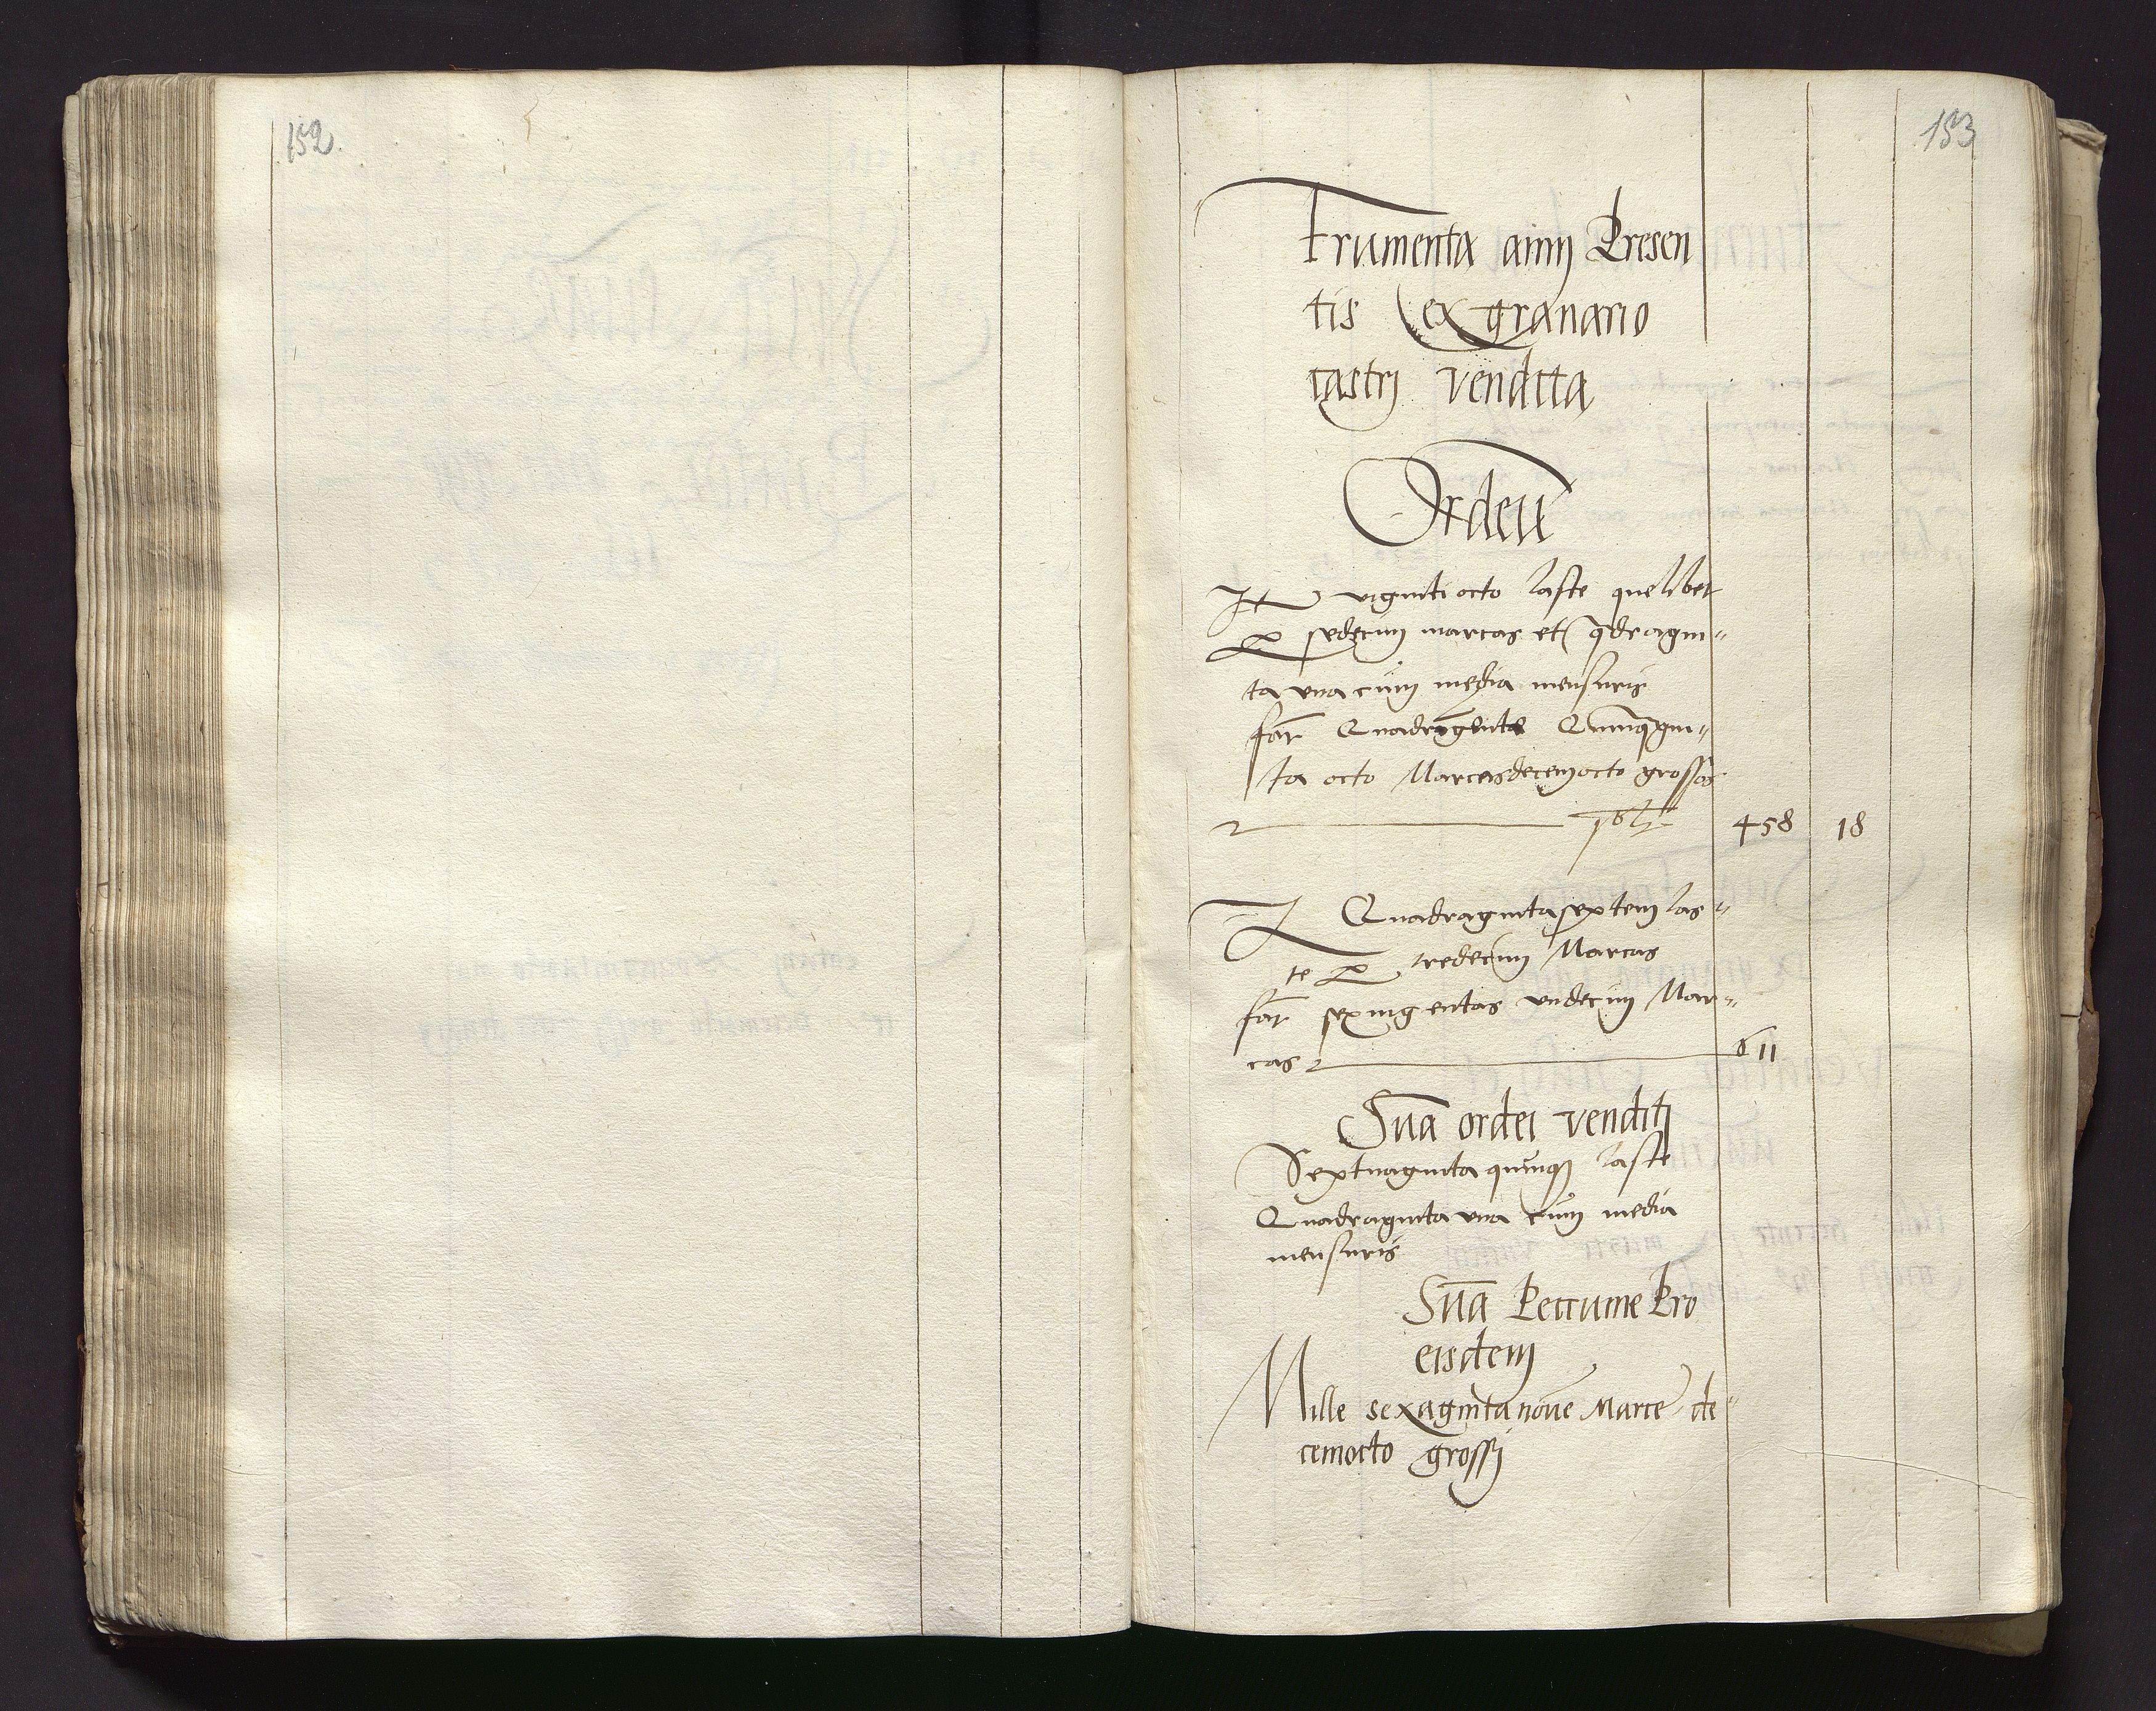 152
153
Frumenta anni Presen
tis ex granario
castri vendita
Ordeū
It viginti octo laste quelibet
p sedecim marcas et q̄dragin"
ta vna cum media mensuris
fāt Quadringentas Quinq̄gin"
ta octo Marcas decemocto grossos
458 18
I Quadragintaseptem las"
te p tredecim Marcas
fāt sexingentas vndecim Mar"
cas 611
Sūa ordei venditi
Septuaginta quinq3 laste
Quadraginta vna cum media
mensuris
Sūa Peccunie Pro
eisdem
Mille sexagintanoue Marce de"
cemocto grossi